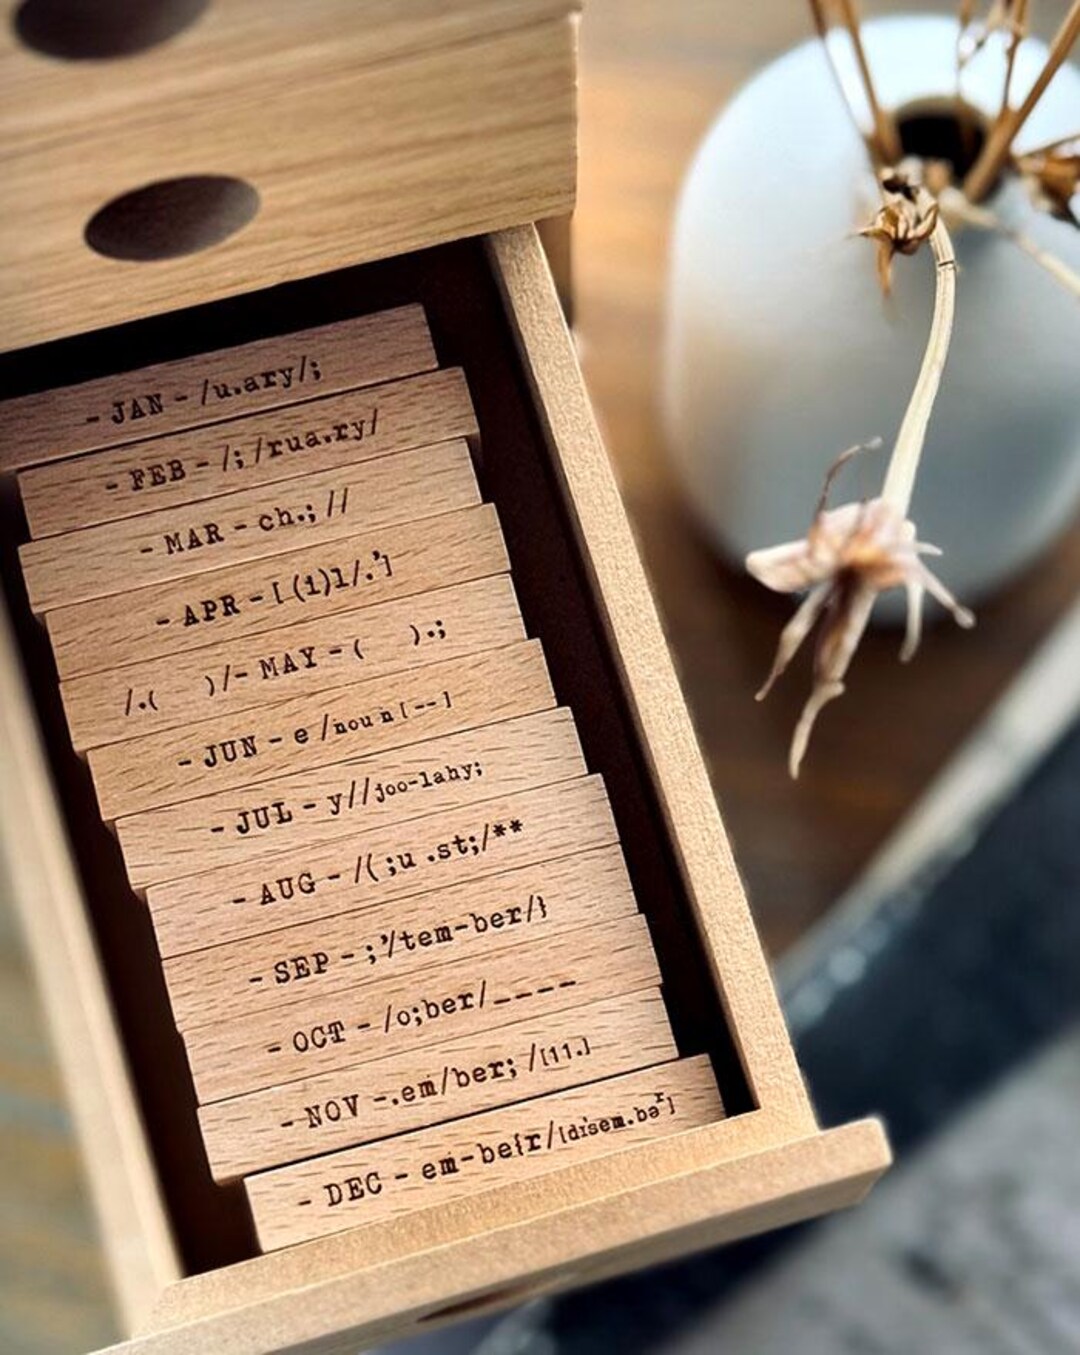 - JAN - /u.ary/;
- FEB - /; /rua.ry/
- MAR - ch.; //
- APR - [ (1)1/.']
/.(    )/- MAY - (    ).;
- JUN - e /noun[--]
- JUL - y//joo-lahy;
- AUG - /( ;u .st;/**
- SEP - ;'/tem-ber/}
- OCT - /o;ber/____
- NOV -.em/ber; /[11.]
- DEC - em-be{r/[disem.bəʳ]